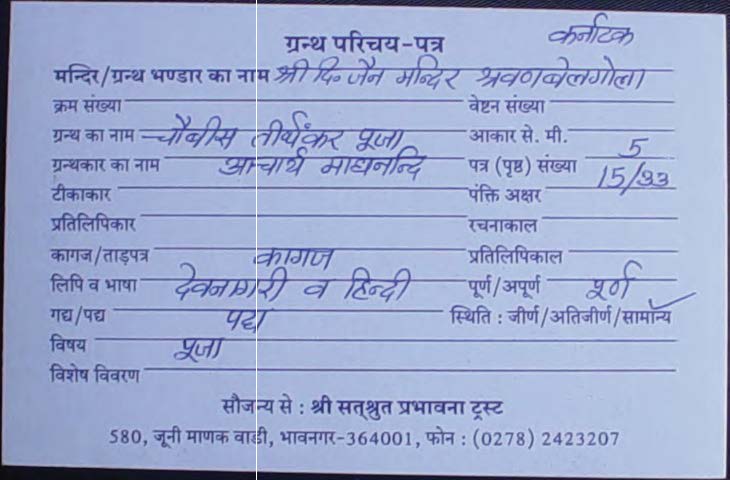 ग्रन्थ परिचय-पत्र कर्नाटक
मन्दिर/ग्रन्थ भण्डार का नाम श्री दि॰ जैन मन्दिर श्रवणबेलगोला
क्रम संख्या वेष्टन संख्या
ग्रन्थ का नाम चौबीस तीर्थंकर पूजा आकार से. मी.
ग्रन्थकार का नाम आचार्य माघनन्दि पत्र (पृष्ठ) संख्या 5
टीकाकार पंक्ति अक्षर 15/33
प्रतिलिपिकार रचनाकाल
कागज/ताड़पत्र कागज प्रतिलिपिकाल
लिपि व भाषा देवनागरी व हिन्दी पूर्ण/अपूर्ण पूर्ण
गद्य/पद्य पद्य स्थिति : जीर्ण/अतिजीर्ण/सामान्य
विषय पूजा
विशेष विवरण
सौजन्य से : श्री सत्श्रुत प्रभावना ट्रस्ट
580, जूनी माणक वाडी, भावनगर-364001, फोन : (0278) 2423207